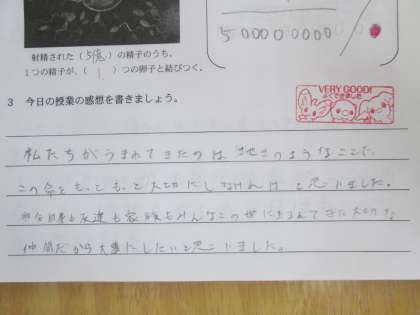 射精された(5億)の精子のうち、
1つの精子が、(1)つの卵子と結びつく。
500000000
3 今日の授業の感想を書きましょう。
VERY GOOD!
よくできました
私たちがうまれてきたのはきせきのようなことで、
この命をもっともっと大切にしなければと思いました。
友達も家族もみんなこの世に生まれてきた大切な
仲間だから大事にしたいと思いました。